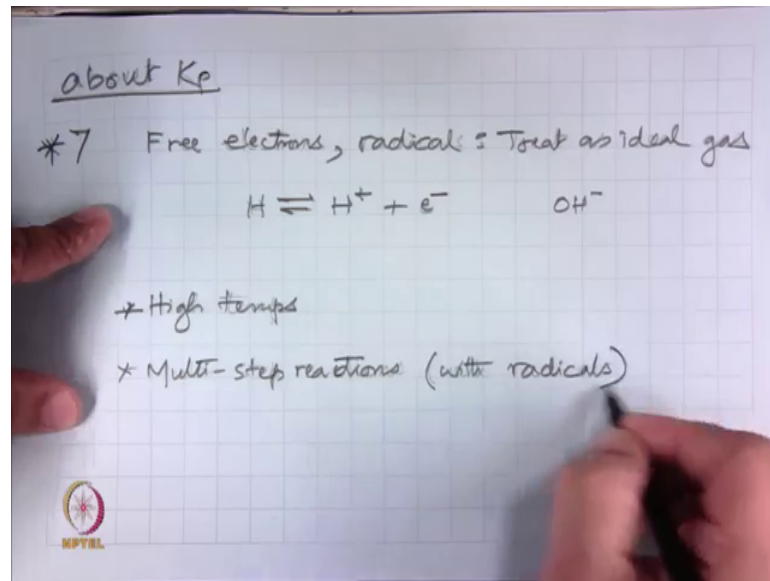 about Kp
*7 Free electrons, radicals : Treat as ideal gas
H ⇌ H⁺ + e⁻ OH⁻
* High temps
* Multi-step reactions (with radicals)
NPTEL